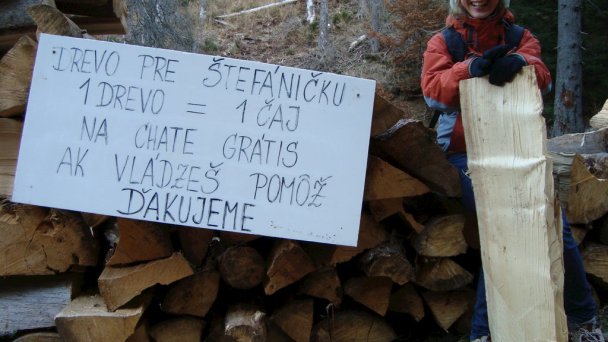 DREVO PRE ŠTEFÁNIČKU
1 DREVO = 1 ČAJ
NA CHATE GRÁTIS
AK VLÁDŽEŠ POMÔŽ
ĎAKUJEME